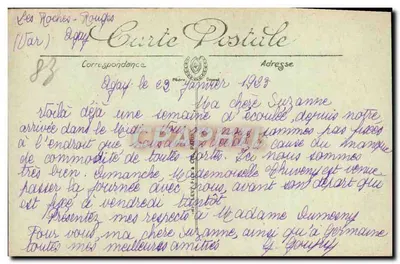 Les Roches-Rouges
(Var) Agay
83
Carte Postale
Correspondance
Adresse
Agay le 29 Janvier 1923
Ma chère Suzanne
Voilà déjà une semaine d'écoulée depuis notre
arrivée dans le Midi. Nous ne sommes pas
à l'endroit que cause du manque
de commodité de toutes sortes. Ici nous sommes
très bien. Dimanche, Mademoiselle est venue
passer la journée avec nous, avant son départ qui
est fixé à vendredi
Présentez mes respects à Madame Dumesny
Pour vous, ma chère Suzanne, ainsi qu'à Germaine
toutes mes meilleures amitiés